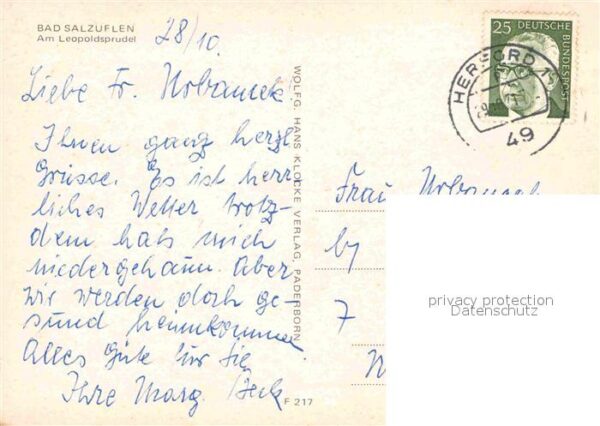 BAD SALZUFLEN
Am Leopoldsprudel
28/10.
Liebe Fr. Urbanek
Ihnen ganz herzl.
Grüsse. Es ist herr
liches Wetter trotz-
dem hats mich
niedergehaun. Aber
wir werden doch ge-
sund heimkommen
Alles Gute für Sie
Ihre Marg. Beck
WOLFG. HANS KLOCKE VERLAG, PADERBORN
F 217
25 DEUTSCHE BUNDESPOST
HERFORD 1
49
Frau Urbanek
by
7
privacy protection
Datenschutz